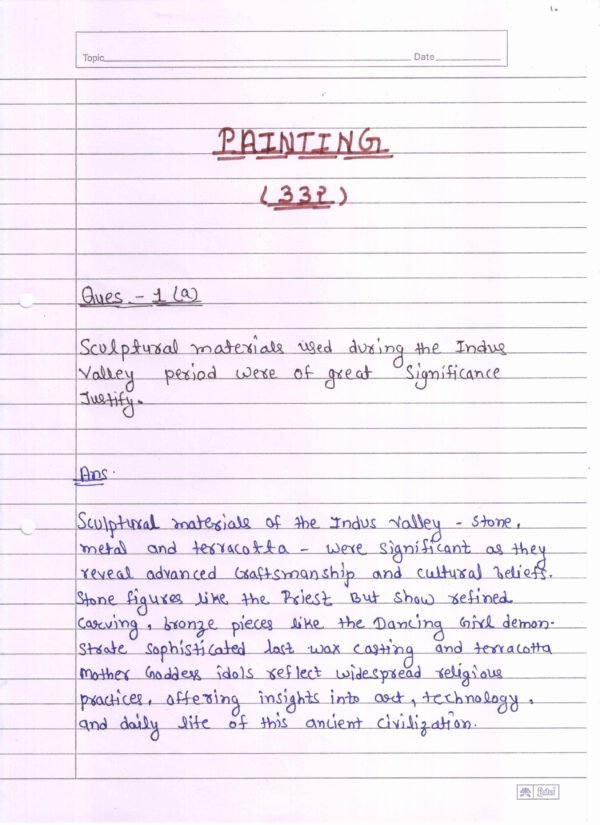 1.
Topic Date
PAINTING
(332)
Ques. - 1 (a)
Sculptural materials used during the Indus
Valley period were of great Significance
Justify.
Ans.
Sculptural materials of the Indus Valley - Stone,
metal and terracotta - were significant as they
reveal advanced Craftsmanship and cultural beliefs.
Stone figures like the Priest But show refined
Carving, bronze pieces like the Dancing Girl demon-
strate sophisticated lost wax casting and terracotta
Mother Goddess idols reflect widespread religious
practices, offering insights into art, technology,
and daily life of this ancient civilization.